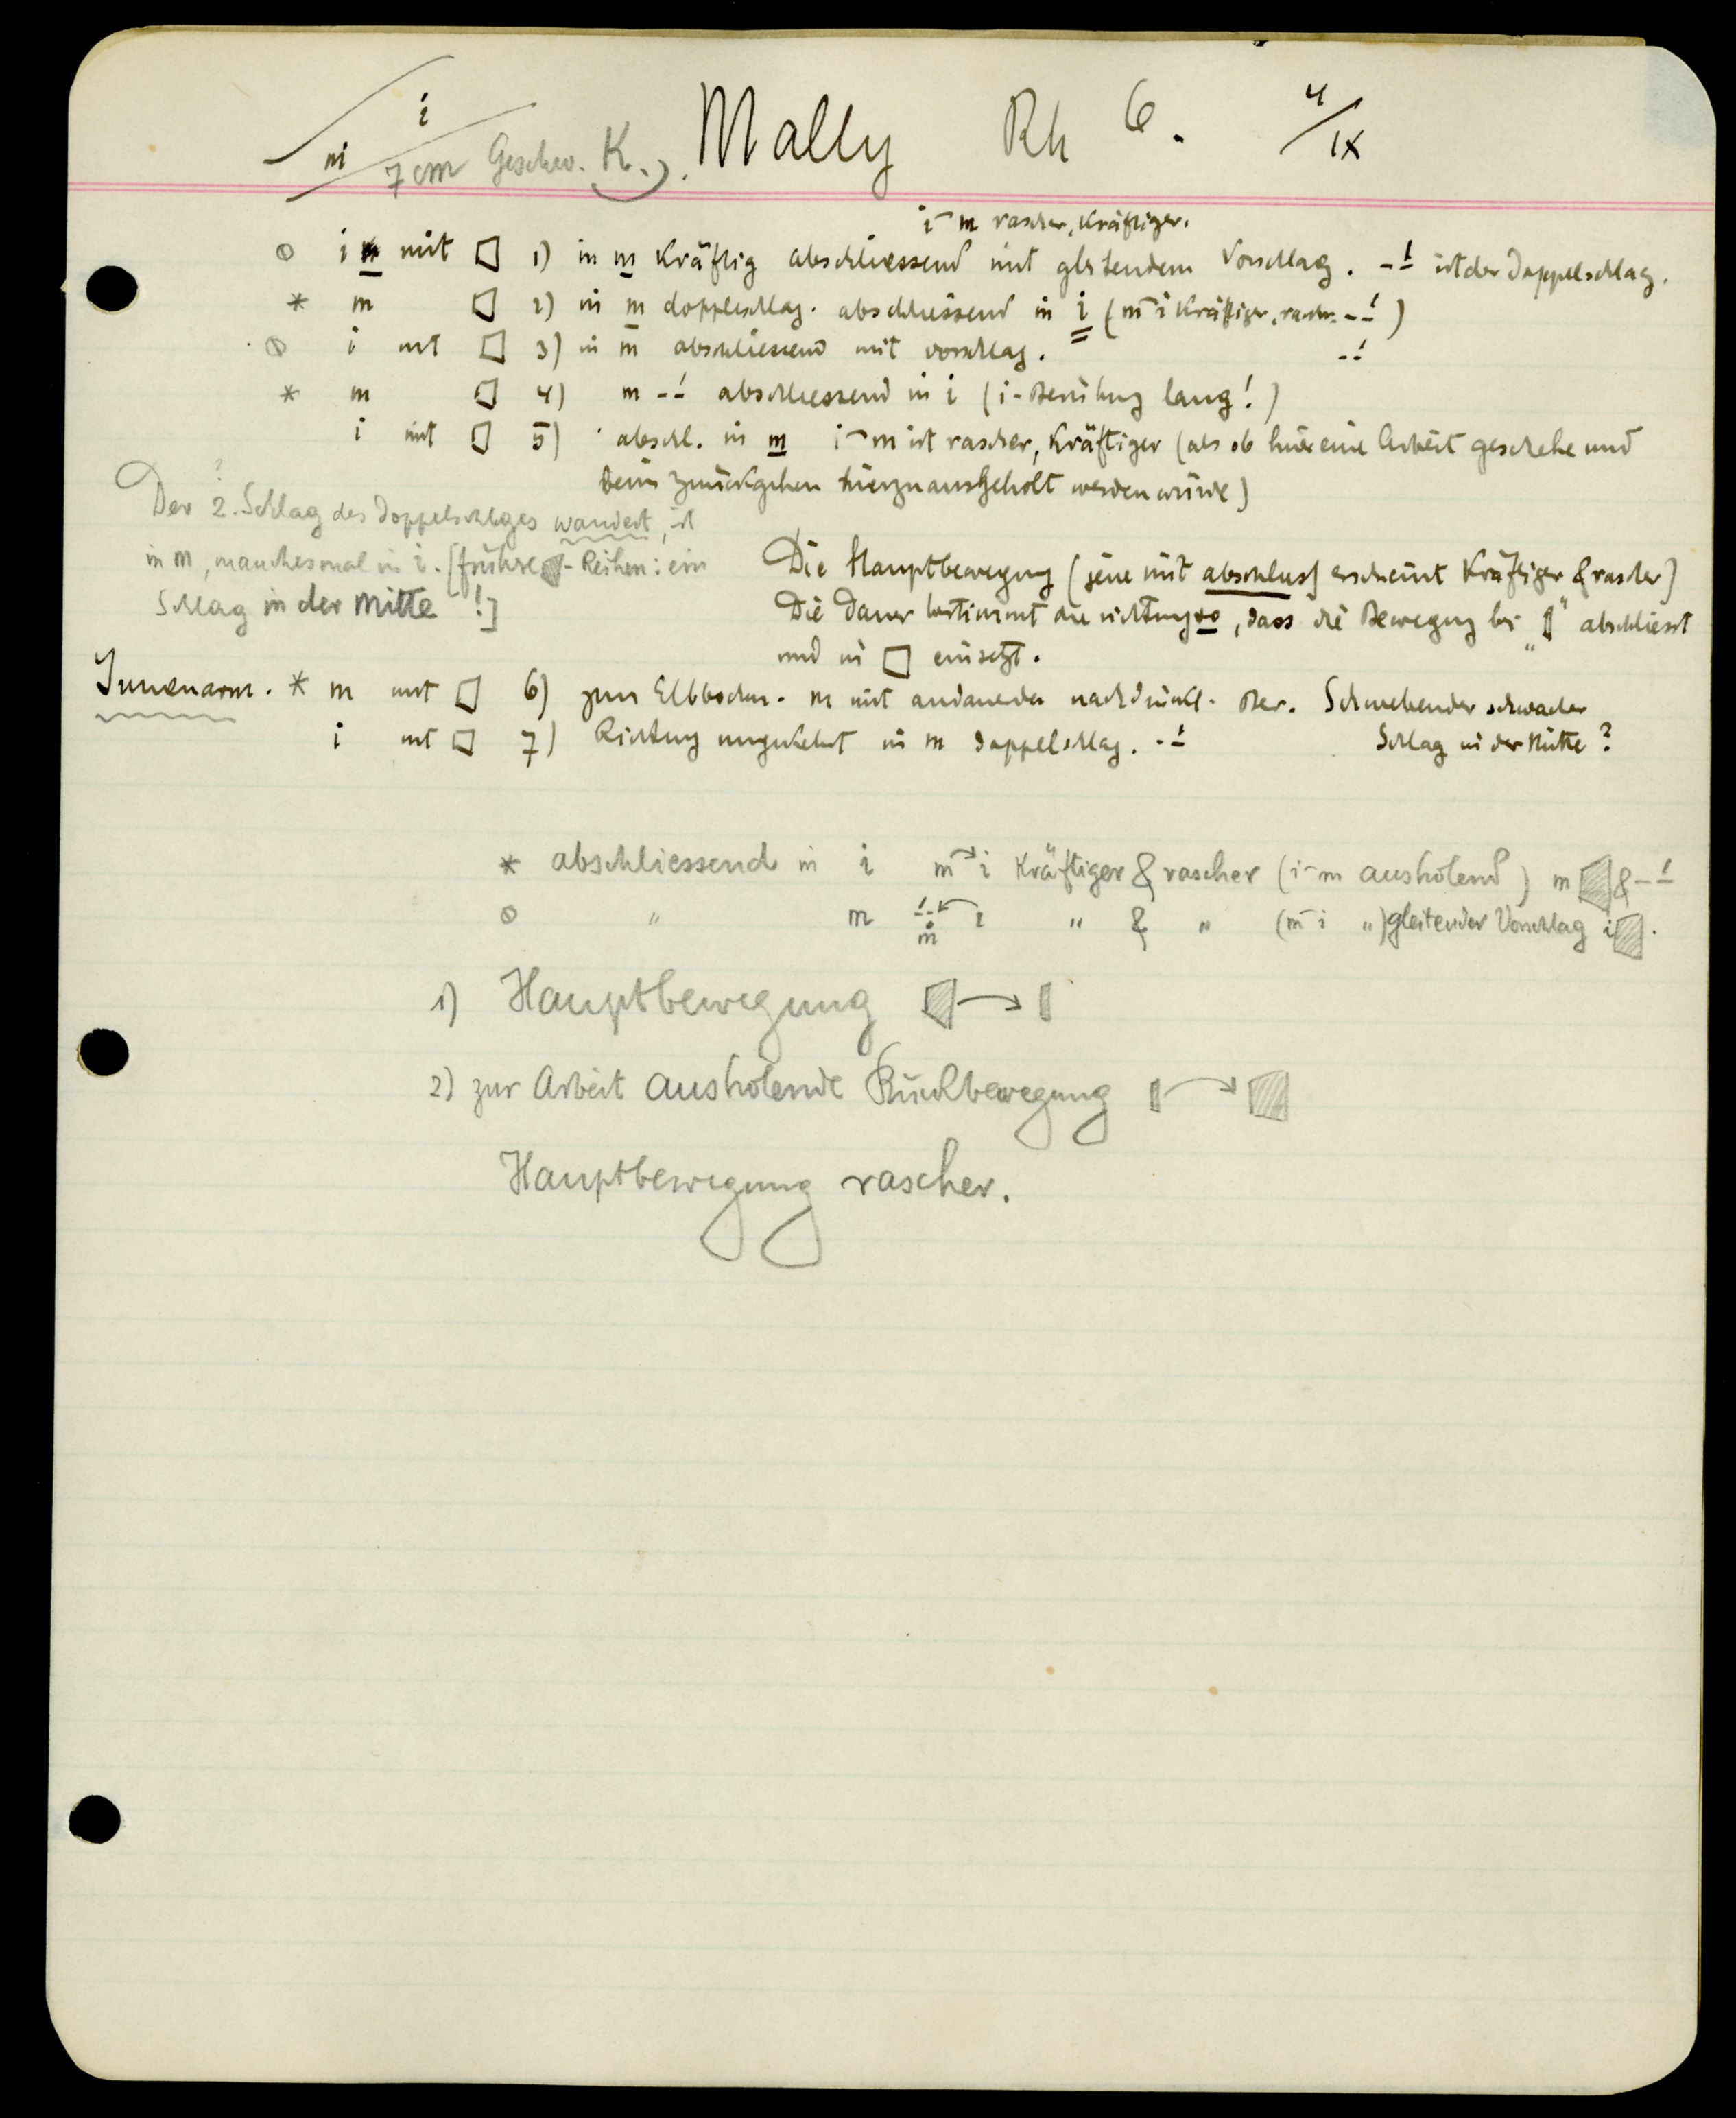 i
m
7 cm Geschw. K. Mally Rh 6. 4/IX
i m rascher, kräftiger.
i m mit 1) in m kräftig abschliessend mit gleitendem Vorschlag. -!- ist der Doppelschlag.
* m 2) in m doppelschlag. abschliessend in i (m i kräftiger, rascher --!)
i mit 3) in m abschliessend mit vorschlag. --!
* m 4) m --! abschliessend in i (i-Berührung lang!)
i mit 5) abschl. in m i m ist rascher, kräftiger (als ob hier eine Arbeit geschehe und
beim zurückgehen hierzu ausgeholt werden würde)
Der 2. Schlag des Doppelschlages wandert, ist
in m, manchesmal in i. [frühre -Reihen: ein
Schlag in der Mitte !]
Die Hauptbewegung (jene mit abschluss) erscheint kräftiger & rascher)
Die Dauer bestimmt die richtung so, dass die Bewegung bei " " abschliesst
und in einsetzt.
Innenarm. * m mit 6) zum m mit andauernder nachdrückl. Ber. Schwebender schwacher
i mit 7) Richtung umgekehrt in m doppelschlag. --! Schlag in der Mitte?
* abschliessend in i m i kräftiger & rascher (i m ausholend) m & --!
" m i " & " (m i ") gleitender Vorschlag i .
m
1) Hauptbewegung →
2) zur Arbeit ausholende Rückbewegung →
Hauptbewegung rascher.